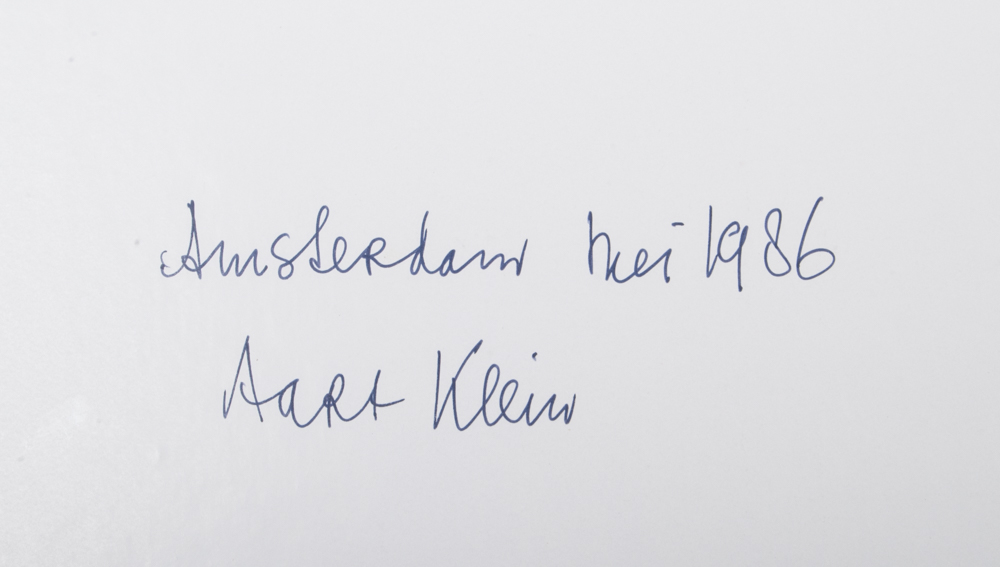 Amsterdam Mei 1986
Aart Klein